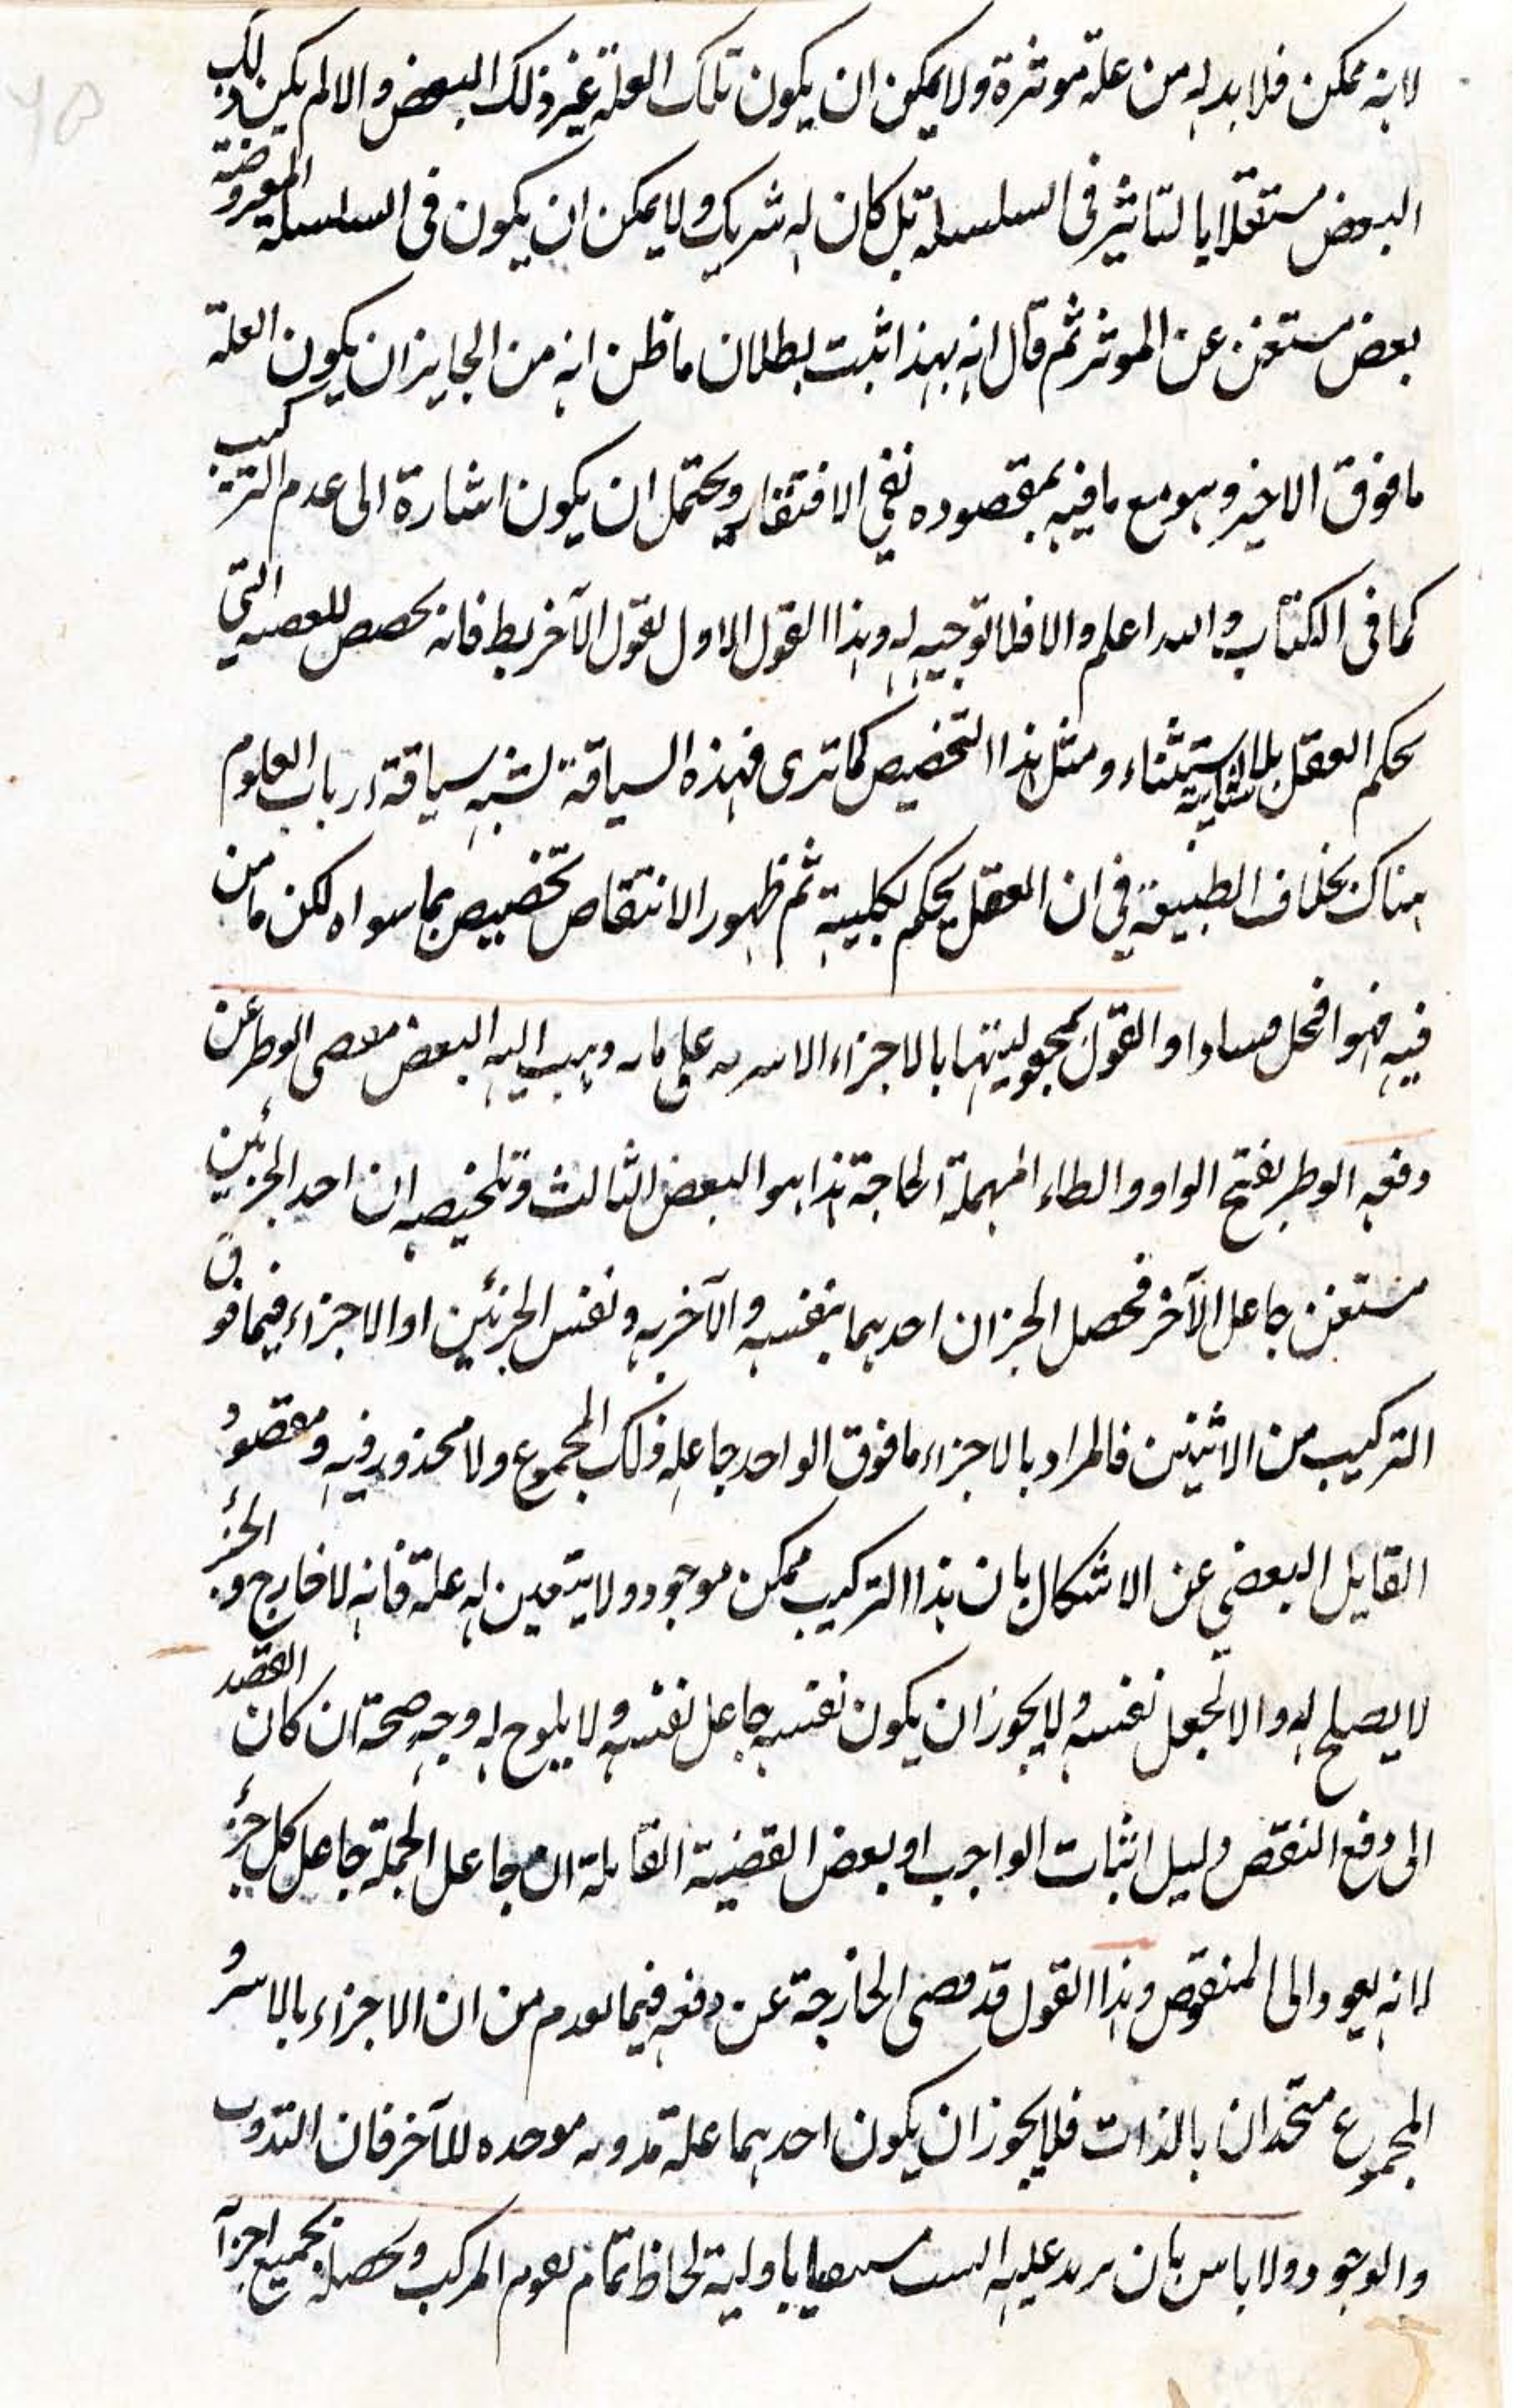 لانه ممكن فلا بد له من علة موثرة ولا يمكن ان يكون تلك العلة غير ذلك البعض والا لم يكن ذلك
البعض مستقلا بالتاثير فى السلسلة بل كان له شريك ولا يمكن ان يكون فى السلسلة المفروضة
بعض مستغن عن الموثر ثم قال انه بهذا ثبت بطلان ما ظن انه من الجايز ان يكون العلة
ما فوق الاخير وهو مع ما فيه بمقصوده نفى الافتقار ويحتمل ان يكون اشارة الى عدم التركيب
كما فى الكتاب والله اعلم والا فلا توجيه له وهذا القول الاول لقول الآخر فانه التى
يحكم العقل بلا استثناء ومثل هذا التخصيص كما ترى فهذه السياقة لشبه سياقة ارباب العلوم
هناك بخلاف الطبيعة فى ان العقل يحكم بكلية ثم ظهور الانتقاض تخصيص بما سواه لكن ما من
فيه فهو او القول بمجعوليتها بالاجزاء على ما ذهب اليه البعض الوطر عن
دفعه الوطر بفتح الواو والطاء المهملة الحاجة هذا هو البعض الثالث وتلخيصه ان احد الجزئين
مستغن جاعل الآخر فحصل الجزان احدهما بنفسه والآخر به ونفس الجزئين او الاجزاء فيما فوق
التركيب من الاثنين فالمراد بالاجزاء ما فوق الواحد جاعله ذلك المجموع ولا محذور فيه ومقصود
القايل عن الاشكال بان هذا التركيب ممكن موجود ولا يتعين له علة فانه لا خارج والجزء
لا يصلح له والا لجعل نفسه ولا يجوز ان يكون نفسه جاعل نفسه ولا يلوح له وجه صحة ان كان القصد
الى دفع النقض دليل اثبات الواجب او بعض القضية القايلة ان جاعل الجملة جاعل كل جزء
لانه يعود الى المنقوض وهذا القول قد الخارجة عن دفعه فيما من ان الاجزاء بالاسر و
المجموع متحدان بالذات فلا يجوز ان يكون احدهما علة موحده للآخر فان
والوجود ولا باس بان عليه باولية لحاظ تمام المركب بجميع اجزا